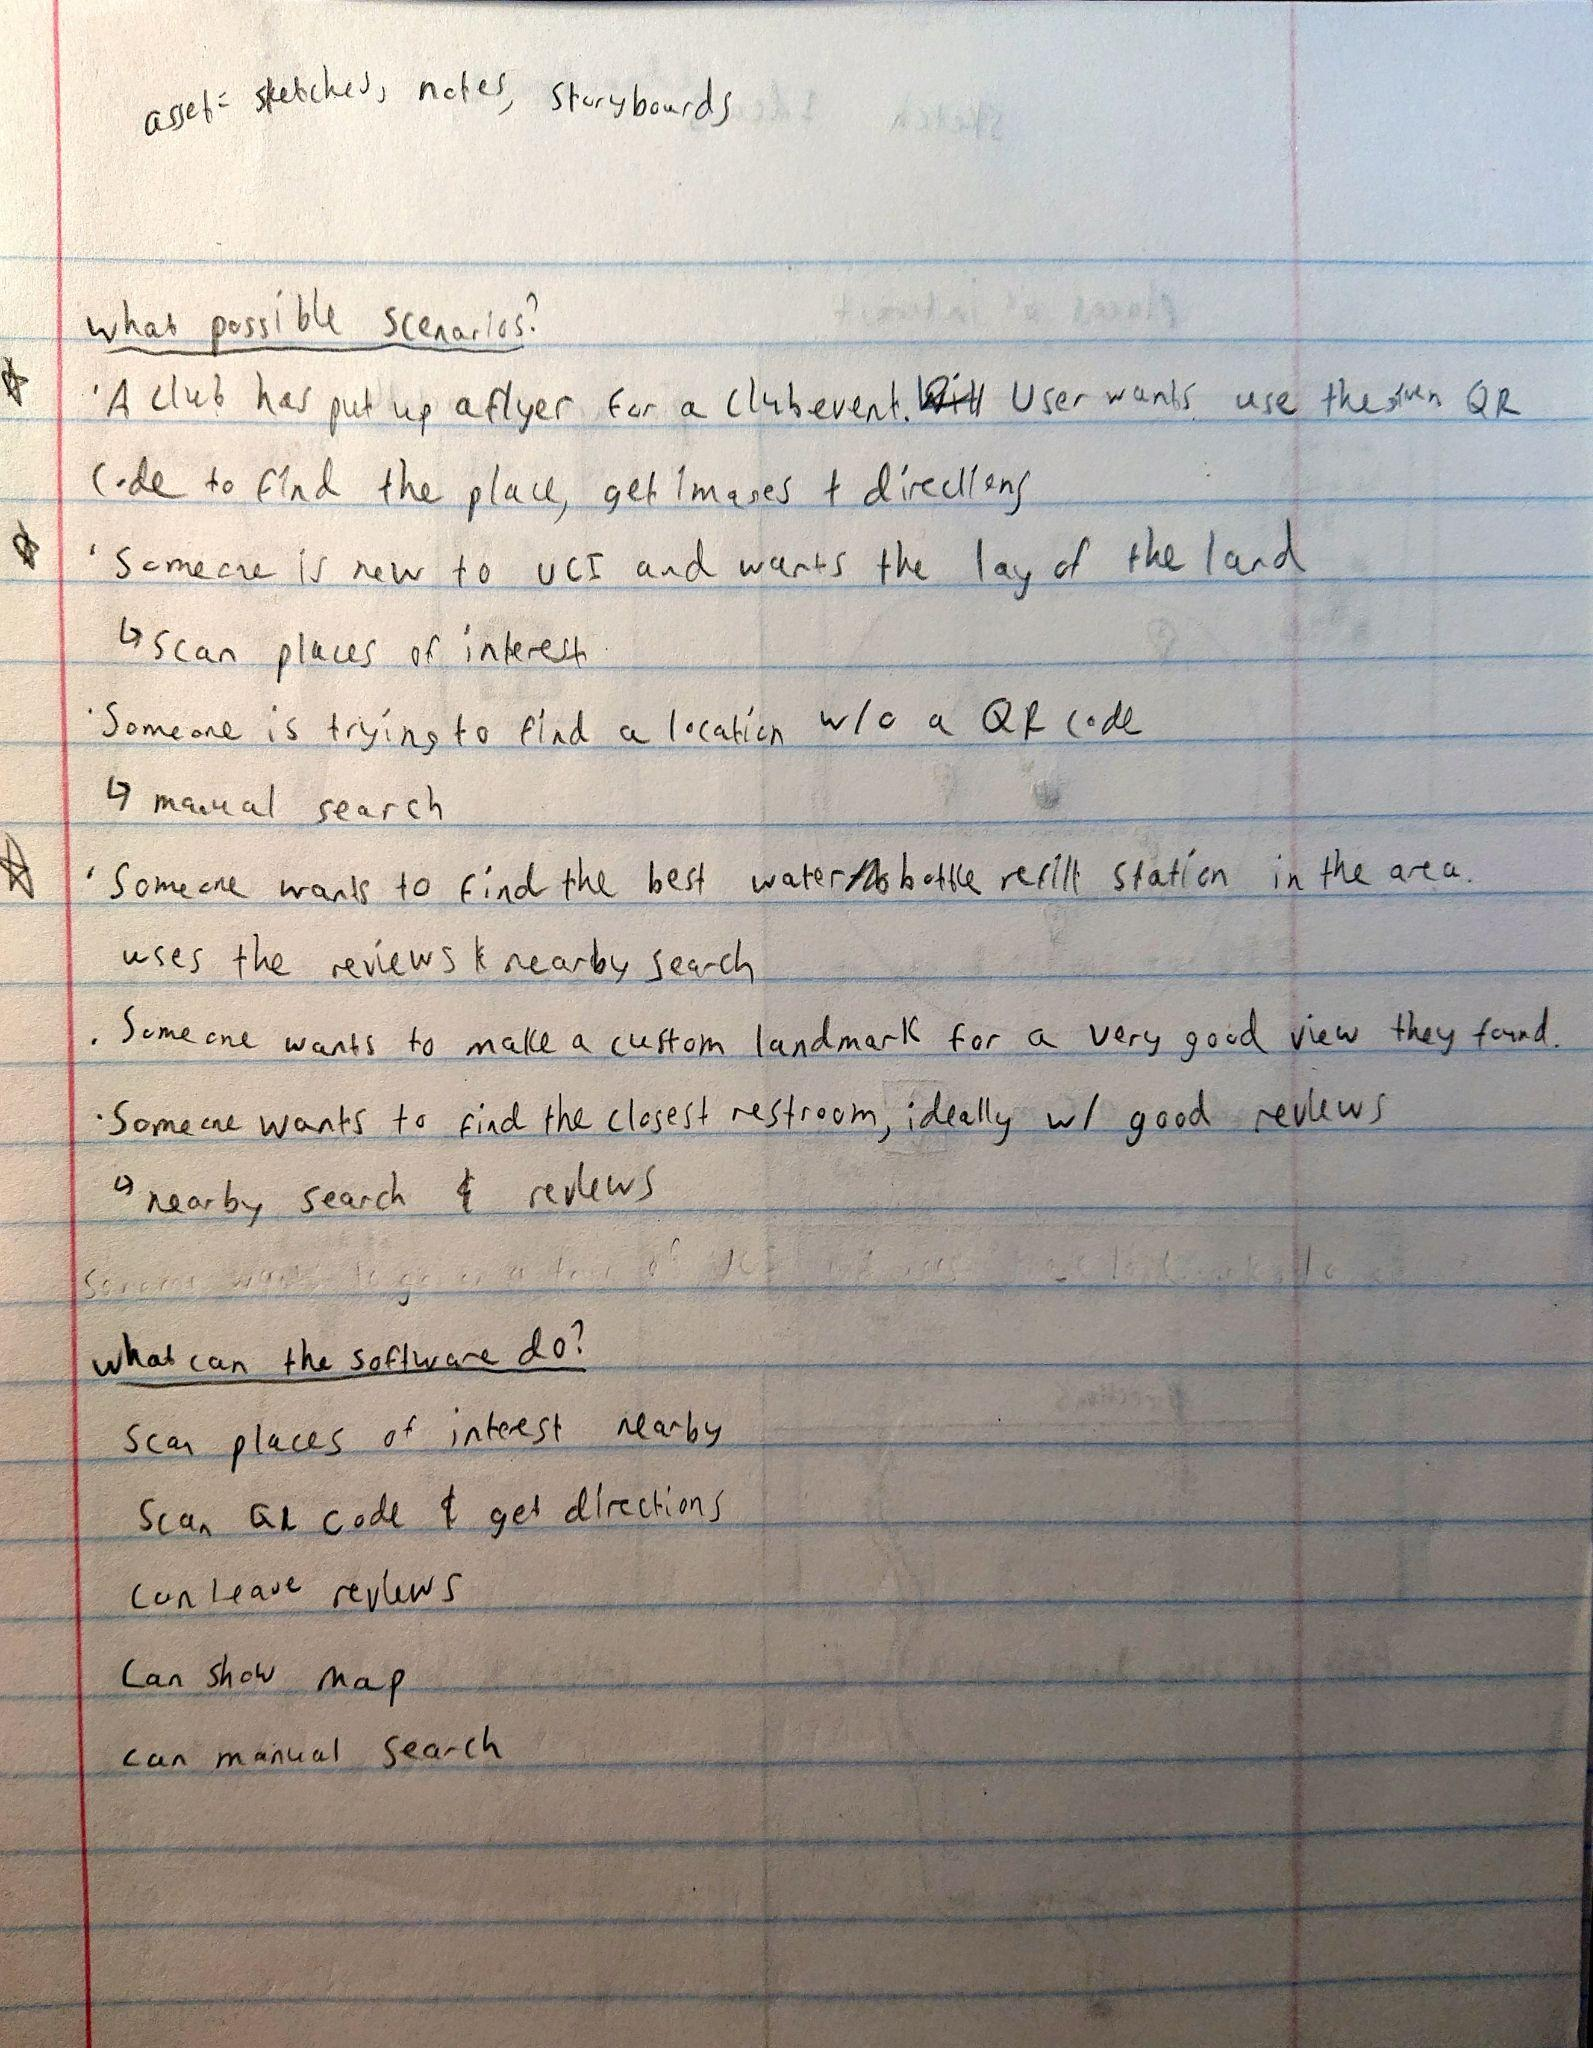 asset= sketches, notes, storyboards
what possible scenarios?
☆ · A club has put up a flyer for a club event. User wants use the given QR
code to find the place, get images + directions
☆ · Someone is new to UCI and wants the lay of the land
↳ scan places of interest
· Someone is trying to find a location w/o a QR code
↳ manual search
☆ · Someone wants to find the best water bottle refill station in the area.
uses the reviews & nearby search
· Someone wants to make a custom landmark for a very good view they found.
· Someone wants to find the closest restroom, ideally w/ good reviews
↳ nearby search & reviews
what can the software do?
Scan places of interest nearby
Scan QR code & get directions
can leave reviews
Can show map
can manual search